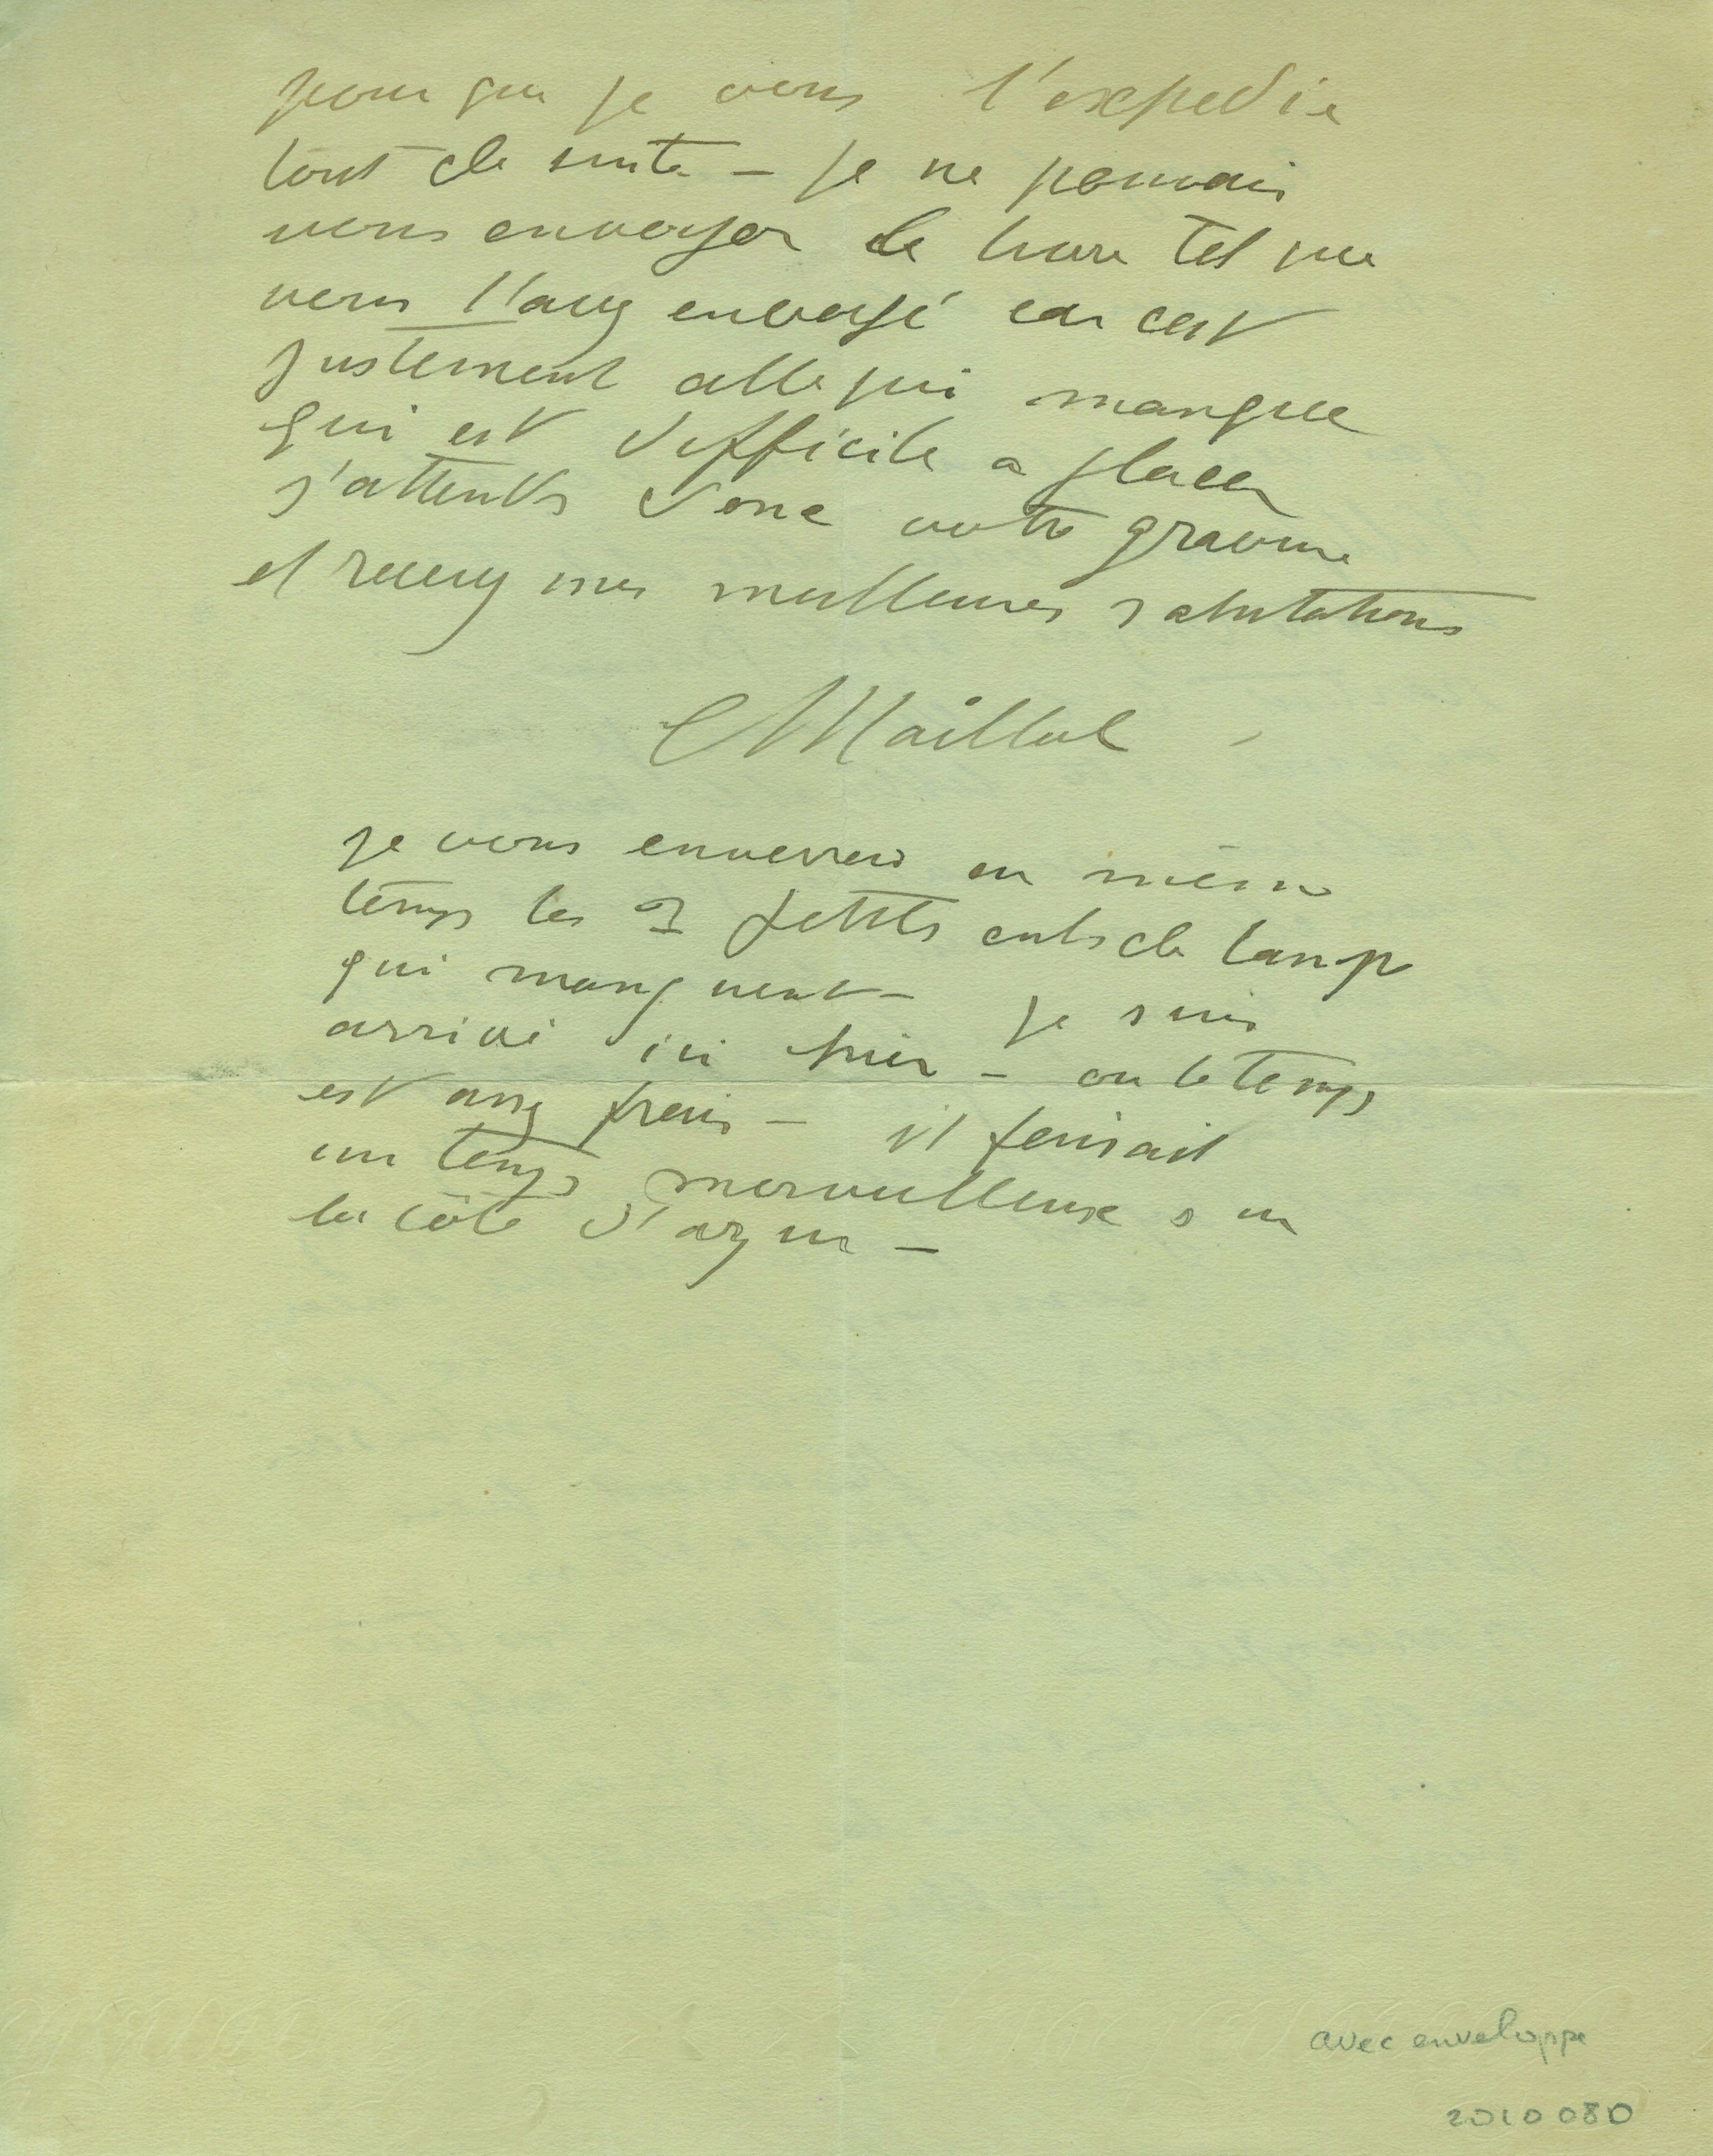 pour que je vous l'expedie
tout de suite – je ne pouvais
vous envoyer le livre tel que
vous l'avez envoyé car cest
justement celle qui manque
qui est difficile a placer
j'attends donc votre gravure
et recevez mes meilleures salutations
Maillol
je vous enverrai en même
temps les petits culs de lamp
qui manquent – je suis
arrivé ici hier – ou le temps
est assez frais – il faisait
un temps merveilleux sur
la côte d'azur –
avec enveloppe
2010 080